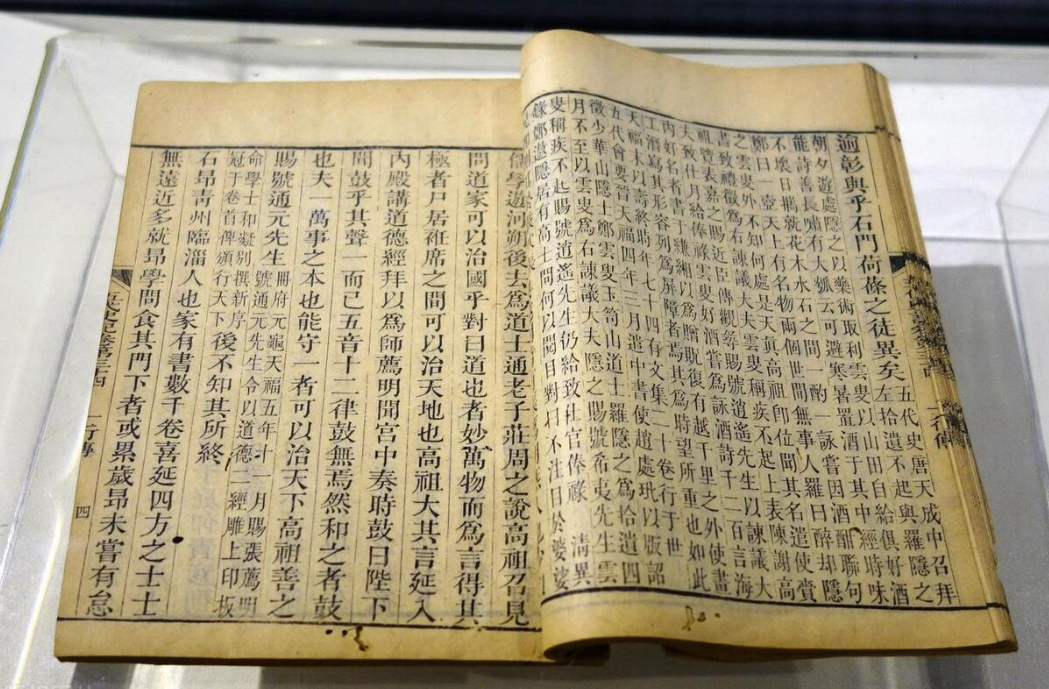 逾彰與乎石門荷蓧之徒異矣
五代史唐天成中召拜
左拾遺不起與羅隱之
朝夕遊處隱之以藥術取利雲叟以山田自給俱好酒
能詩善長嘯有大瓠云可避寒暑置酒于其中經時味
不壞日攜就花木水石之間一酌一詠嘗因酒酣聯句
鄭曰一壺天上有名物兩個世間無事人羅曰醉却隱
之雲叟外不知何處是天真高祖即位聞其名遣使賫
書致禮徵為右諫議大夫雲叟稱疾不起上表陳謝高
祖覽表嘉之賜近臣傳觀尋賜號逍遙先生以諫議大
夫致仕月給俸祿雲叟好酒嘗爲詠酒詩千二百言海
內好名者書于縑緗以爲贈貺復有越千里之外使畫
工潛寫其形容列爲屏障者焉其爲時望所重也如此
天福末以壽終時年七十四有文集二十卷行于世
五代會要晉天福四年二月遣中書使趙處玭以版詔
徵少華山隱士鄭雲叟玉笥山道士羅隱之爲拾遺四
月不至以雲叟爲右諫議大夫隱之賜號希夷先生雲
叟稱疾不起賜號逍遙先生仍給致仕官俸祿 清異
錄鄭遨隱居有高士問何以閱日對曰不注目於婆娑
儒學遊河朔後去爲道士通老子莊周之說高祖召見
問道家可以治國乎對曰道也者妙萬物而爲言得其
極者尸居袵席之間可以治天地也高祖大其言延入
內殿講道德經拜以爲師薦明聞宮中奏時鼓曰陛下
聞鼓乎其聲一而已五音十二律鼓無一焉然和之者鼓
也夫一萬事之本也能守一者可以治天下高祖善之
賜號通元先生
冊府元龜天福五年十一月賜張薦明
號通元先生令以道德二經雕上印板
命學士和凝別撰新序
冠于卷首俾頒行天下
後不知其所終
石昂青州臨淄人也家有書數千卷喜延四方之士士
無遠近多就昂學問食其門下者或累歲昂未嘗有怠
一行傳
四